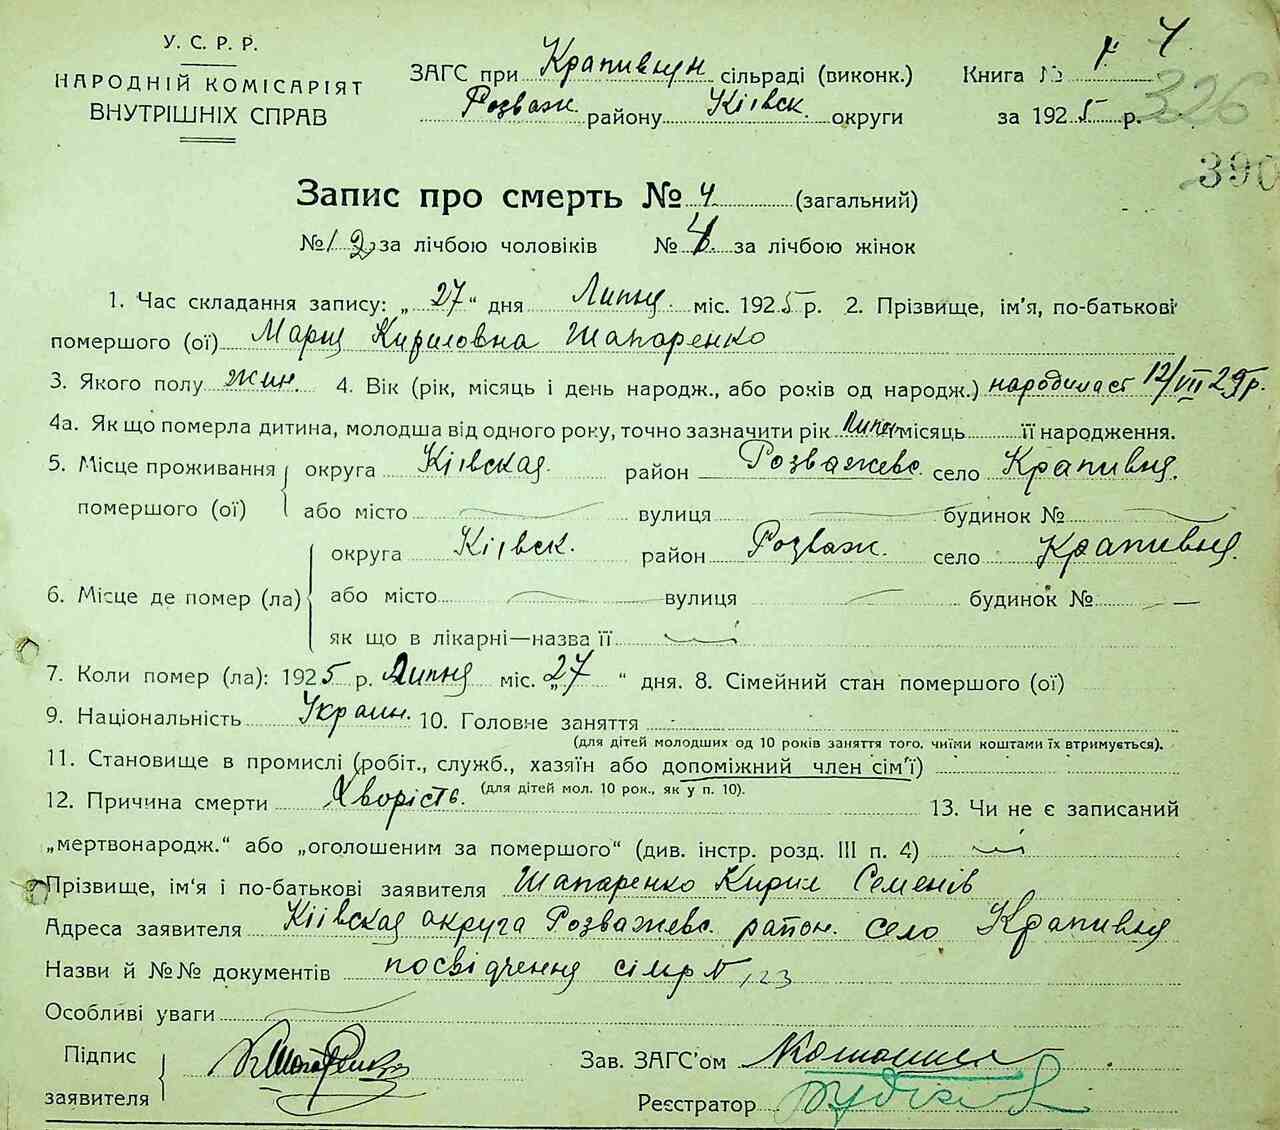 У. С. Р. Р.
НАРОДНІЙ КОМІСАРІЯТ
ВНУТРІШНІХ СПРАВ
ЗАГС при Крапивнян сільраді (виконк.) Книга № 4
Розваж. району Кіівск. округи за 1925 р.
326
390
Запис про смерть № 4 (загальний)
№ 2 за лічбою чоловіків № 4 за лічбою жінок
1. Час складання запису: „27“ дня Липня міс. 1925 р. 2. Прізвище, ім'я, по-батькові
помершого (ої) Мария Кириловна Шапаренко
3. Якого полу жин. 4. Вік (рік, місяць і день народж., або років од народж.) народилась 12/VII 25 р.
4а. Як що померла дитина, молодша від одного року, точно зазначити рік місяць її народження.
5. Місце проживання помершого (ої) округа Кіівская район Розважевс. село Крапивня.
або місто вулиця будинок №
6. Місце де помер (ла) округа Кіівск. район Розваж. село Крапивня.
або місто вулиця будинок №
як що в лікарні—назва її
7. Коли помер (ла): 1925 р. Липня міс. „27“ дня. 8. Сімейний стан помершого (ої)
9. Національність Украин. 10. Головне заняття
(для дітей молодших од 10 років заняття того, чиїми коштами їх втримується).
11. Становище в промислі (робіт., служб., хазяїн або допоміжний член сім'ї)
(для дітей мол. 10 рок., як у п. 10).
12. Причина смерти Хворість. 13. Чи не є записаний
„мертвонародж.“ або „оголошеним за помершого“ (див. інстр. розд. III п. 4)
Прізвище, ім'я і по-батькові заявителя Шапаренко Кирил Семенів
Адреса заявителя Кіівская округа Розважевс. район. село Крапивня
Назви й №№ документів посвідчення сільр № 123
Особливі уваги
Підпис заявителя
Зав. ЗАГС'ом
Реєстратор